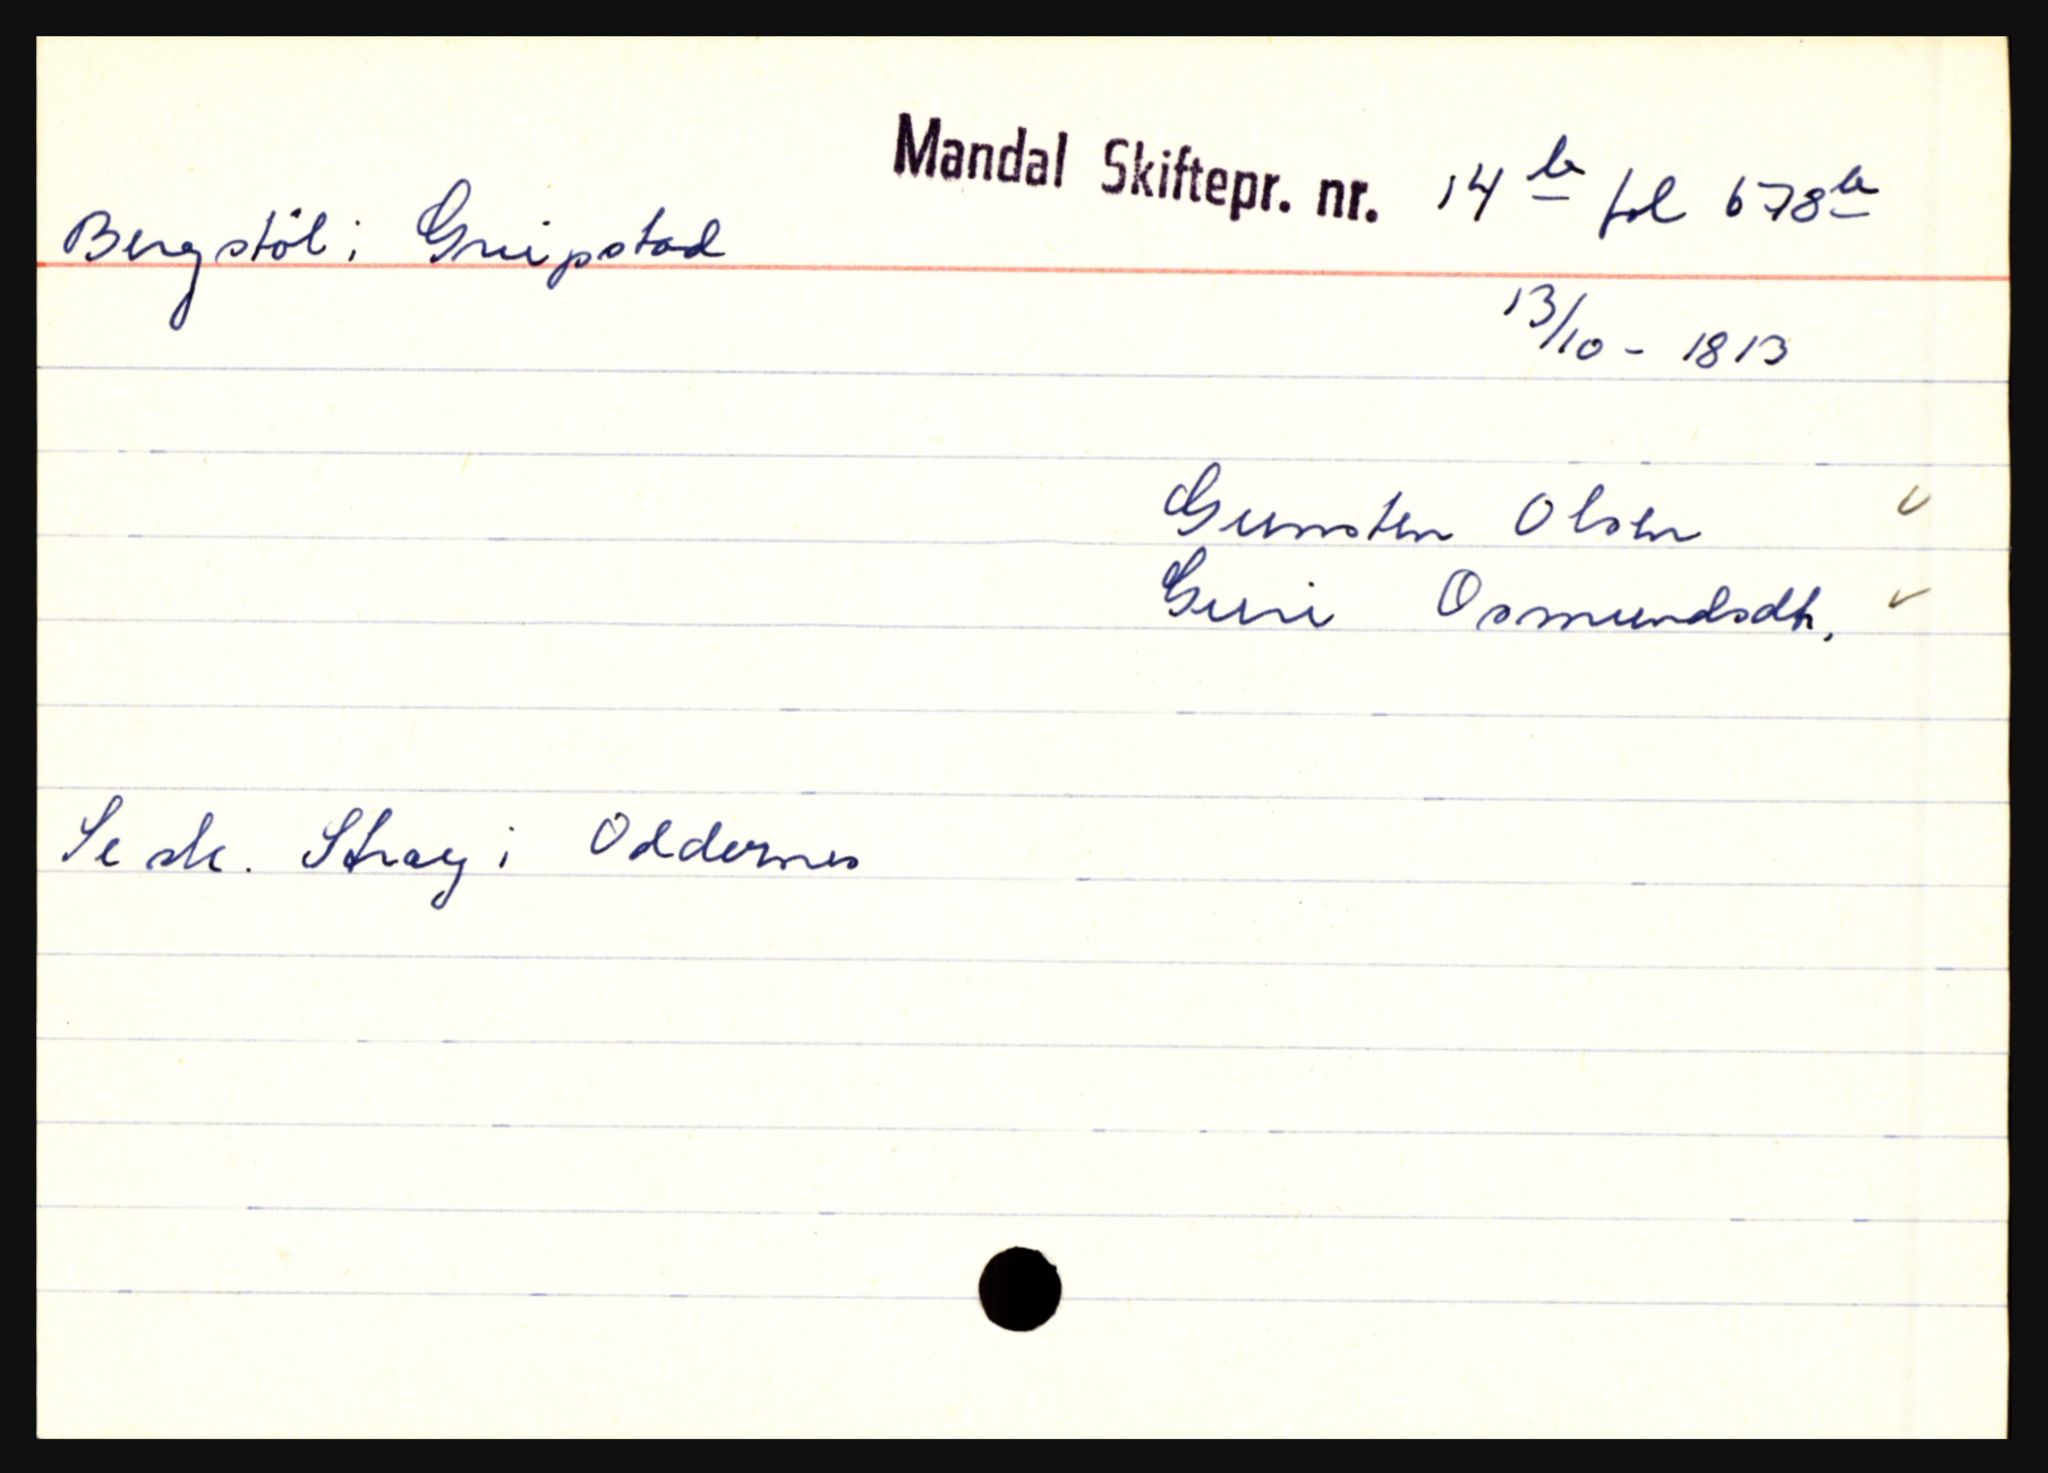 Mandal Skiftepr. nr. 14 b fol 678 b
Bergstöl i Greipstad
13/10 - 1813
Gunsten Olsen ✓
Guri Osmundsdtr. ✓
Se sk. Stray i Oddernes